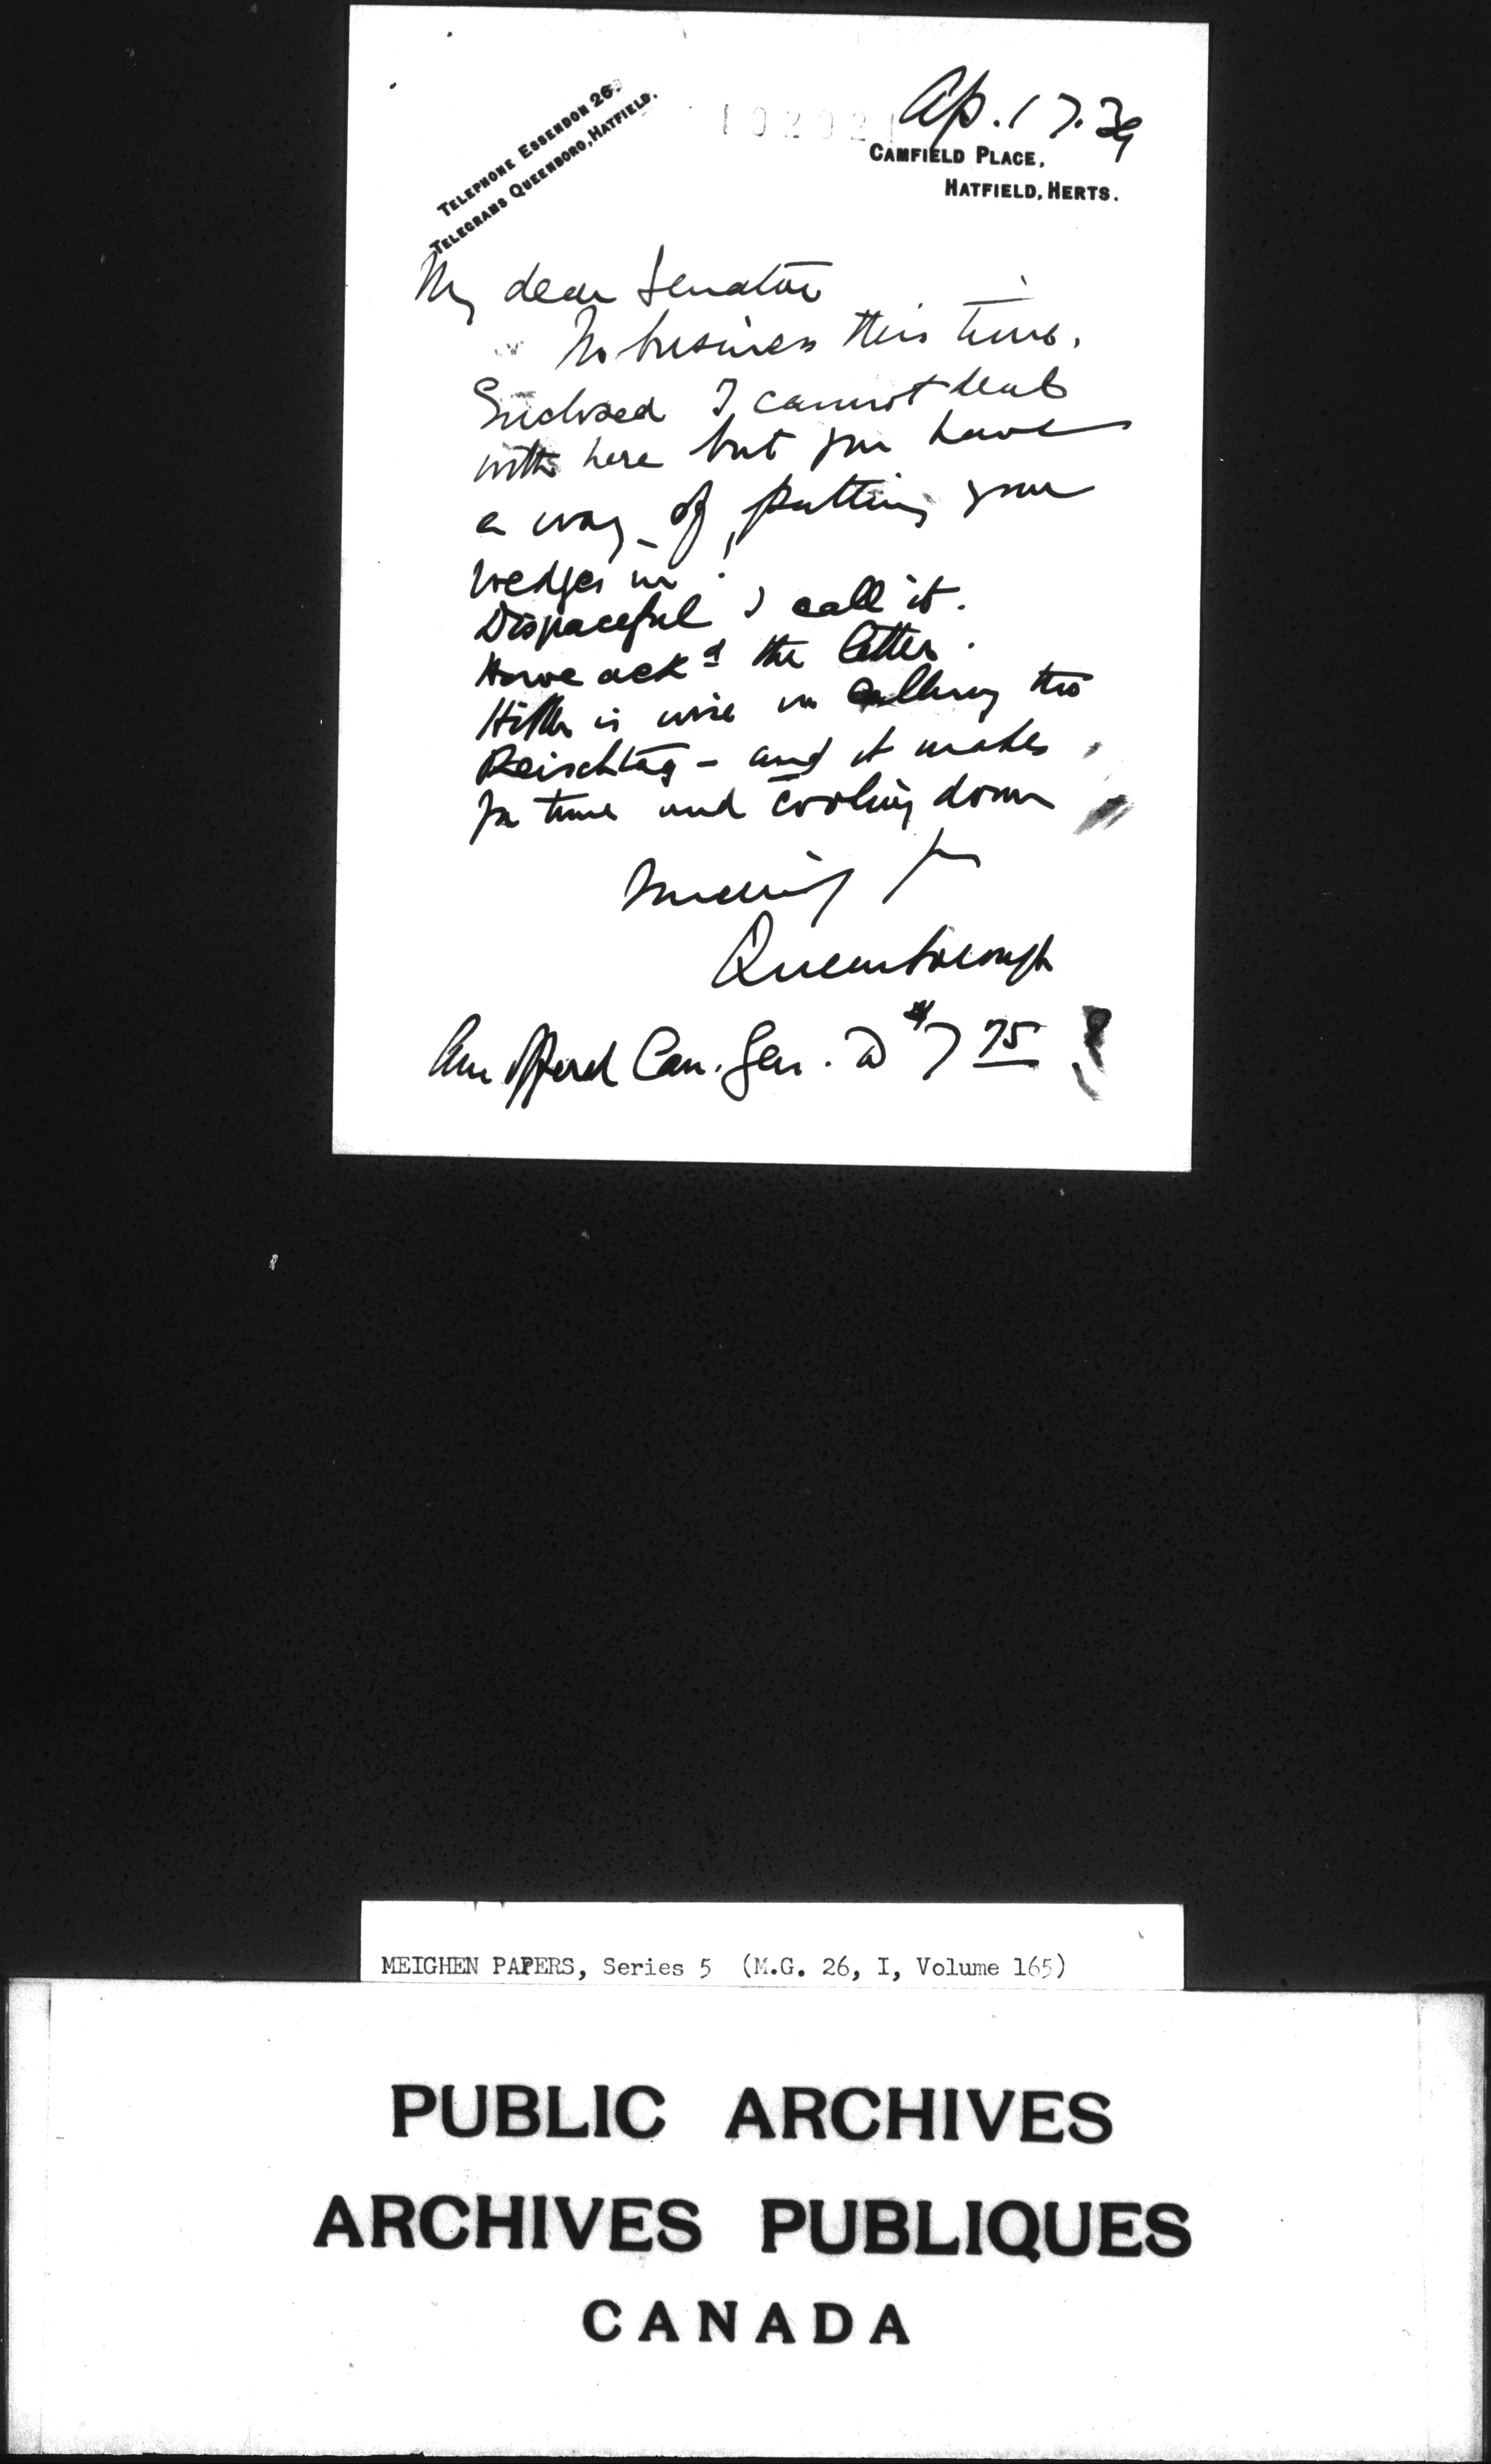 TELEPHONE ESSENDON 26.
TELEGRAMS QUEENBORO, HATFIELD.
10202
Ap. 17. 39
CAMFIELD PLACE,
HATFIELD, HERTS.
My dear Senator
No business this time.
Enclosed I cannot deal
with here but you have
a way of putting your
wedges in!
Disgraceful I call it.
Have ackd the letter.
Hitler is wise in calling the
Reischtag - and it makes
for time and cooling down
Queenborough
Am offered Can. Gen. @ $7 75
MEIGHEN PAPERS, Series 5 (M.G. 26, I, Volume 165)
PUBLIC ARCHIVES
ARCHIVES PUBLIQUES
CANADA